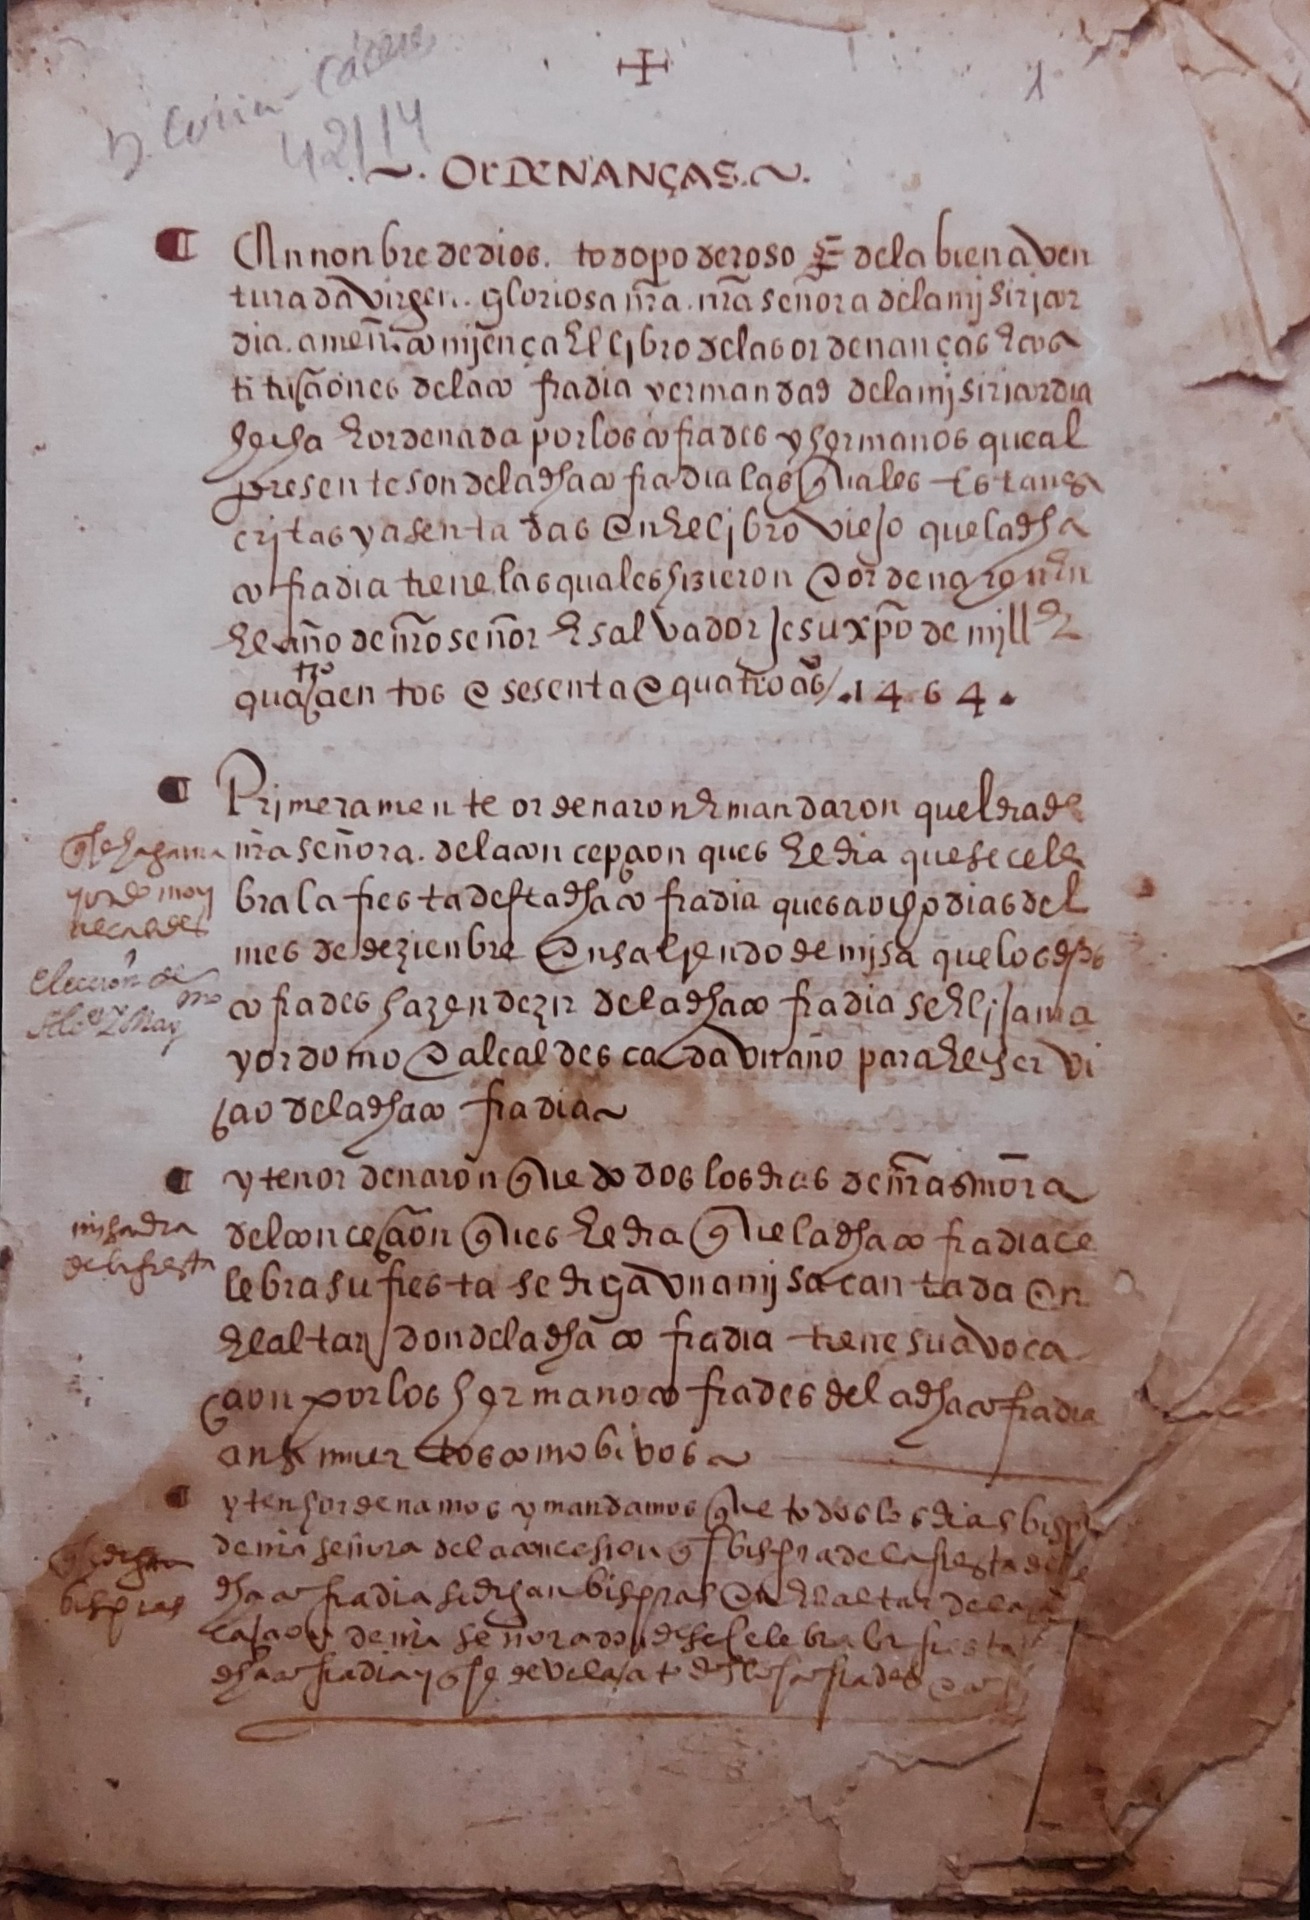 D. Coria-Cáceres
42/14
1
.~. OrDENANÇAS.~.
En nonbre de dios. todopoderoso E dela bienaven
turada virgen. gloriosa nr̃a. nr̃a señora dela mjsiricor
dia. amen. comjença El libro delas ordenanças E cos
tituçiones dela cofradia y ermandad dela mjsiricordia
hecha E ordenada por los cofrades y hermanos que al
presente son dela dha cofradia las quales Estan es
critas y asentadas En El libro viejo que la dha
cofradia tiene las quales hizieron E ordenaron En
El año de nr̃o señor E salvador Jesu xp̃o de mjll E
quatroçientos E sesenta E quatro as̃ / .1464.
Primeramente ordenaron E mandaron quel dia de
nr̃a señora. dela conçepçion ques El dia que se cele
bra la fiesta desta dha cofradia ques a ocho dias del
mes de dezienbre En saljendo de misa que los dhos
cofrades hazen dezir dela dha cofradia se Elija ma
yordomo E alcaldes cada un año para El servi
çio dela dha cofradia~
q̃ se haga ma
yordomo y
alcaldes
Elección de
Alcdes y Maymo
yten ordenaron que todos los dias de nr̃a señora
dela conceçion ques El dia que la dha cofradia ce
lebra su fiesta se diga una mjsa cantada En
El altar donde la dha cofradia tiene su avoca
çion por los hermanos cofrades dela dha cofradia
ansi muertos como bivos~
misa dia
de la fiesta
yten hordenamos y mandamos que todos los dias bispra
de nr̃a señora dela concesion q̃ es bispra dela fiesta de
dha cofradia se digan bispras En El altar dela
de nr̃a señora donde se celebra la fiesta
dha cofradia y q̃ se
q̃ se digan
bispras